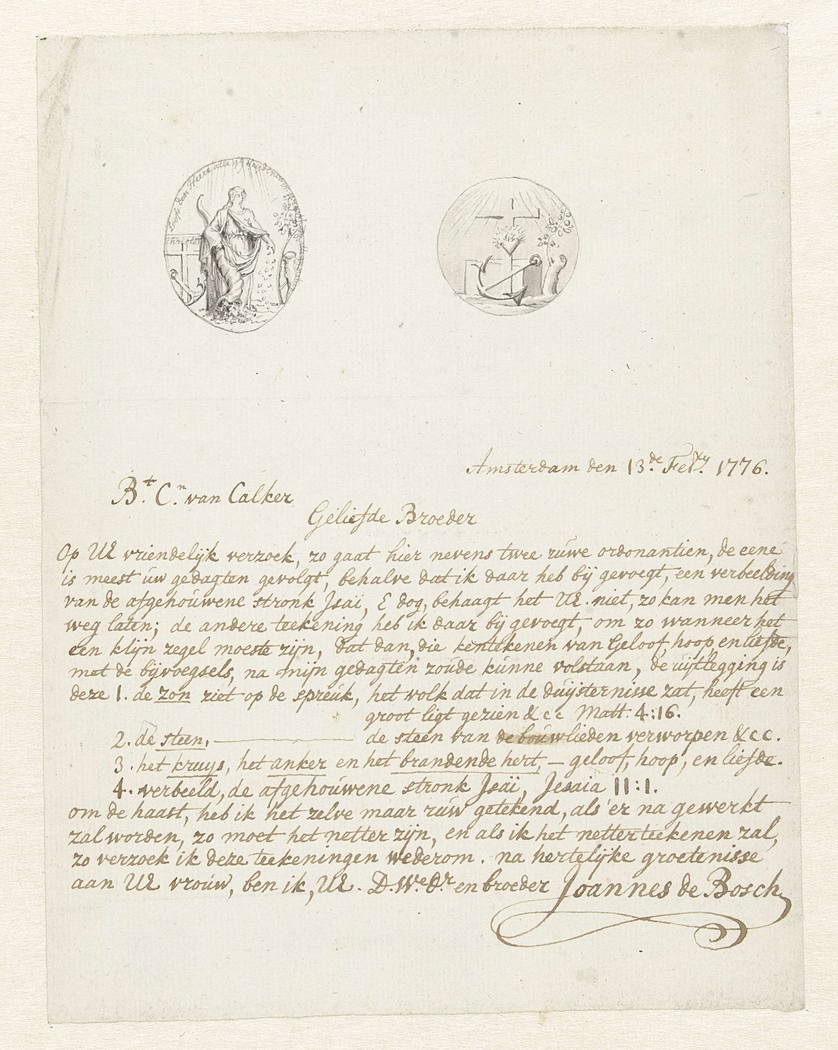 Amsterdam den 13de. Febry. 1776.
Bt. Cn. van Calker
Geliefde Broeder
Op UE vriendelijk verzoek, zo gaat hier nevens twee rúwe ordonantien, de eene
is meest úw gedagten gevolgt, behalve dat ik daar heb bij gevoegt, een verbeelding
van de afgehoúwene stronk Jsaï, & dog, behaagt het UE. niet, zo kan men het
weg laten; de andere teekening heb ik daar bij gevoegt, om zo wanneer het
een klijn zegel moeste zijn, dat dan, die kentekenen van Geloof, hoop, en liefde,
met de bijvoegsels, na mijn gedagten zoúde kúnne volstaan, de úijtlegging is
deze 1. de zon ziet op de spreúk, het volk dat in de dúijsternisse zat, heeft een
groot ligt gezien &cc Matt: 4:16.
2. de steen, de steen van de boúwlieden verworpen &cc.
3. het kruys, het anker en het brandende hert, – geloof, hoop, en liefde.
4. verbeeld, de afgehoúwene stronk Jsaï, Jesaia 11:1.
om de haast, heb ik het zelve maar rúw getekend, als 'er na gewerkt
zal worden, zo moet het netter zijn, en als ik het netter teekenen zal,
zo verzoek ik deze teekeningen wederom. na hertelijke groetenisse
aan UE vroúw, ben ik, UE. D.W.e dr. en broeder Joannes de Bosch